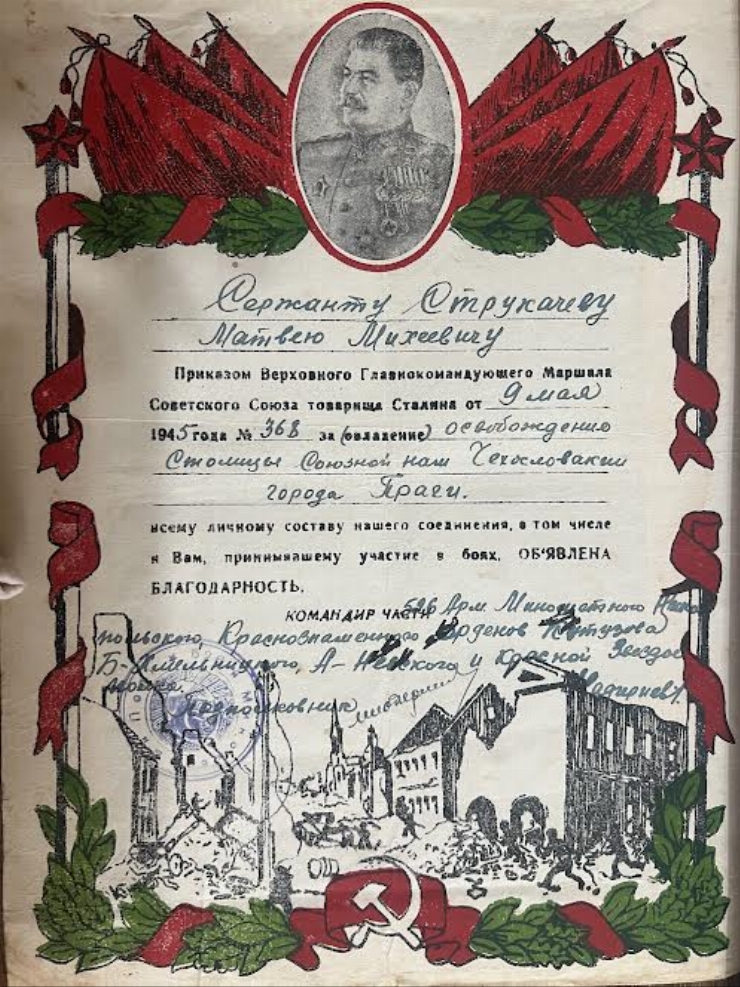 Сержанту Струкачеву
Матвею Михеевичу
Приказом Верховного Главнокомандующего Маршала
Советского Союза товарища Сталина от 9 мая
1945 года № 368 за (овладение) освобождению
Столицы Союзной нам Чехословакии
города Праги.
всему личному составу нашего соединения, в том числе
и Вам, принимавшему участие в боях, ОБ'ЯВЛЕНА
БЛАГОДАРНОСТЬ.
КОМАНДИР ЧАСТИ 526 Арм. Минометного
польского, Краснознаменного Орденов Кутузова
Б-Хмельницкого, А-Невского и Красной Звезды
полка
подполковник